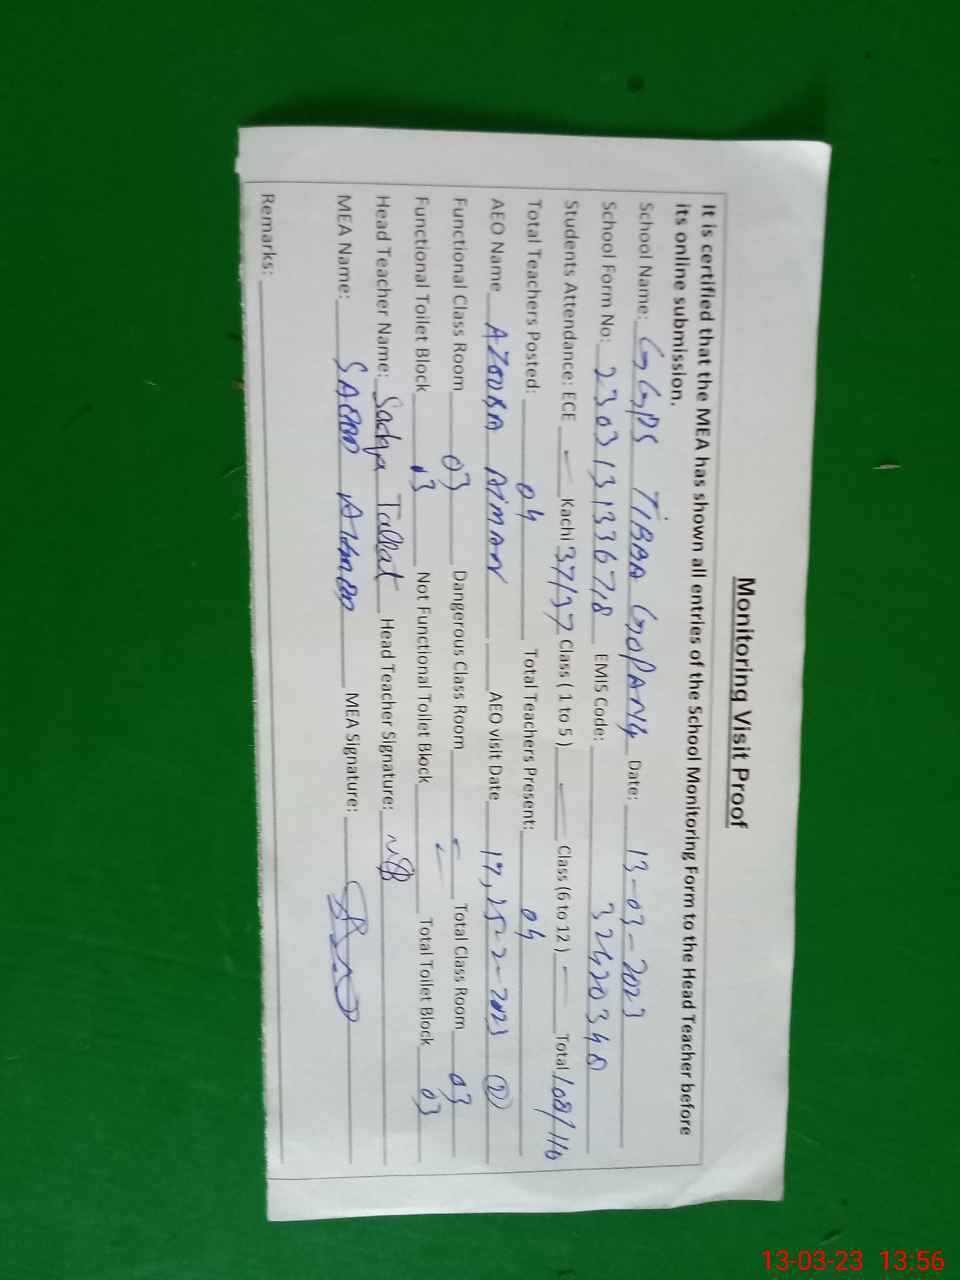 Monitoring Visit Proof
It is certified that the MEA has shown all entries of the School Monitoring Form to the Head Teacher before
its online submission.
School Name: GGPS TIBBA GOPANG Date: 13-03-2023
School Form No: 23031313367,8 EMIS Code: 32420340
Students Attendance: ECE — Kachi 37/37 Class ( 1 to 5 ) — Class (6 to 12 ) — Total 108/110
Total Teachers Posted: 04 Total Teachers Present: 04
AEO Name AZOUBA AIMAN AEO visit Date 17, 25-2-2023 (2)
Functional Class Room 03 Dangerous Class Room — Total Class Room 03
Functional Toilet Block 03 Not Functional Toilet Block — Total Toilet Block 03
Head Teacher Name: Sadqa Tallat Head Teacher Signature:
MEA Name: SAEED AHMED MEA Signature:
Remarks:
13-03-23 13:56